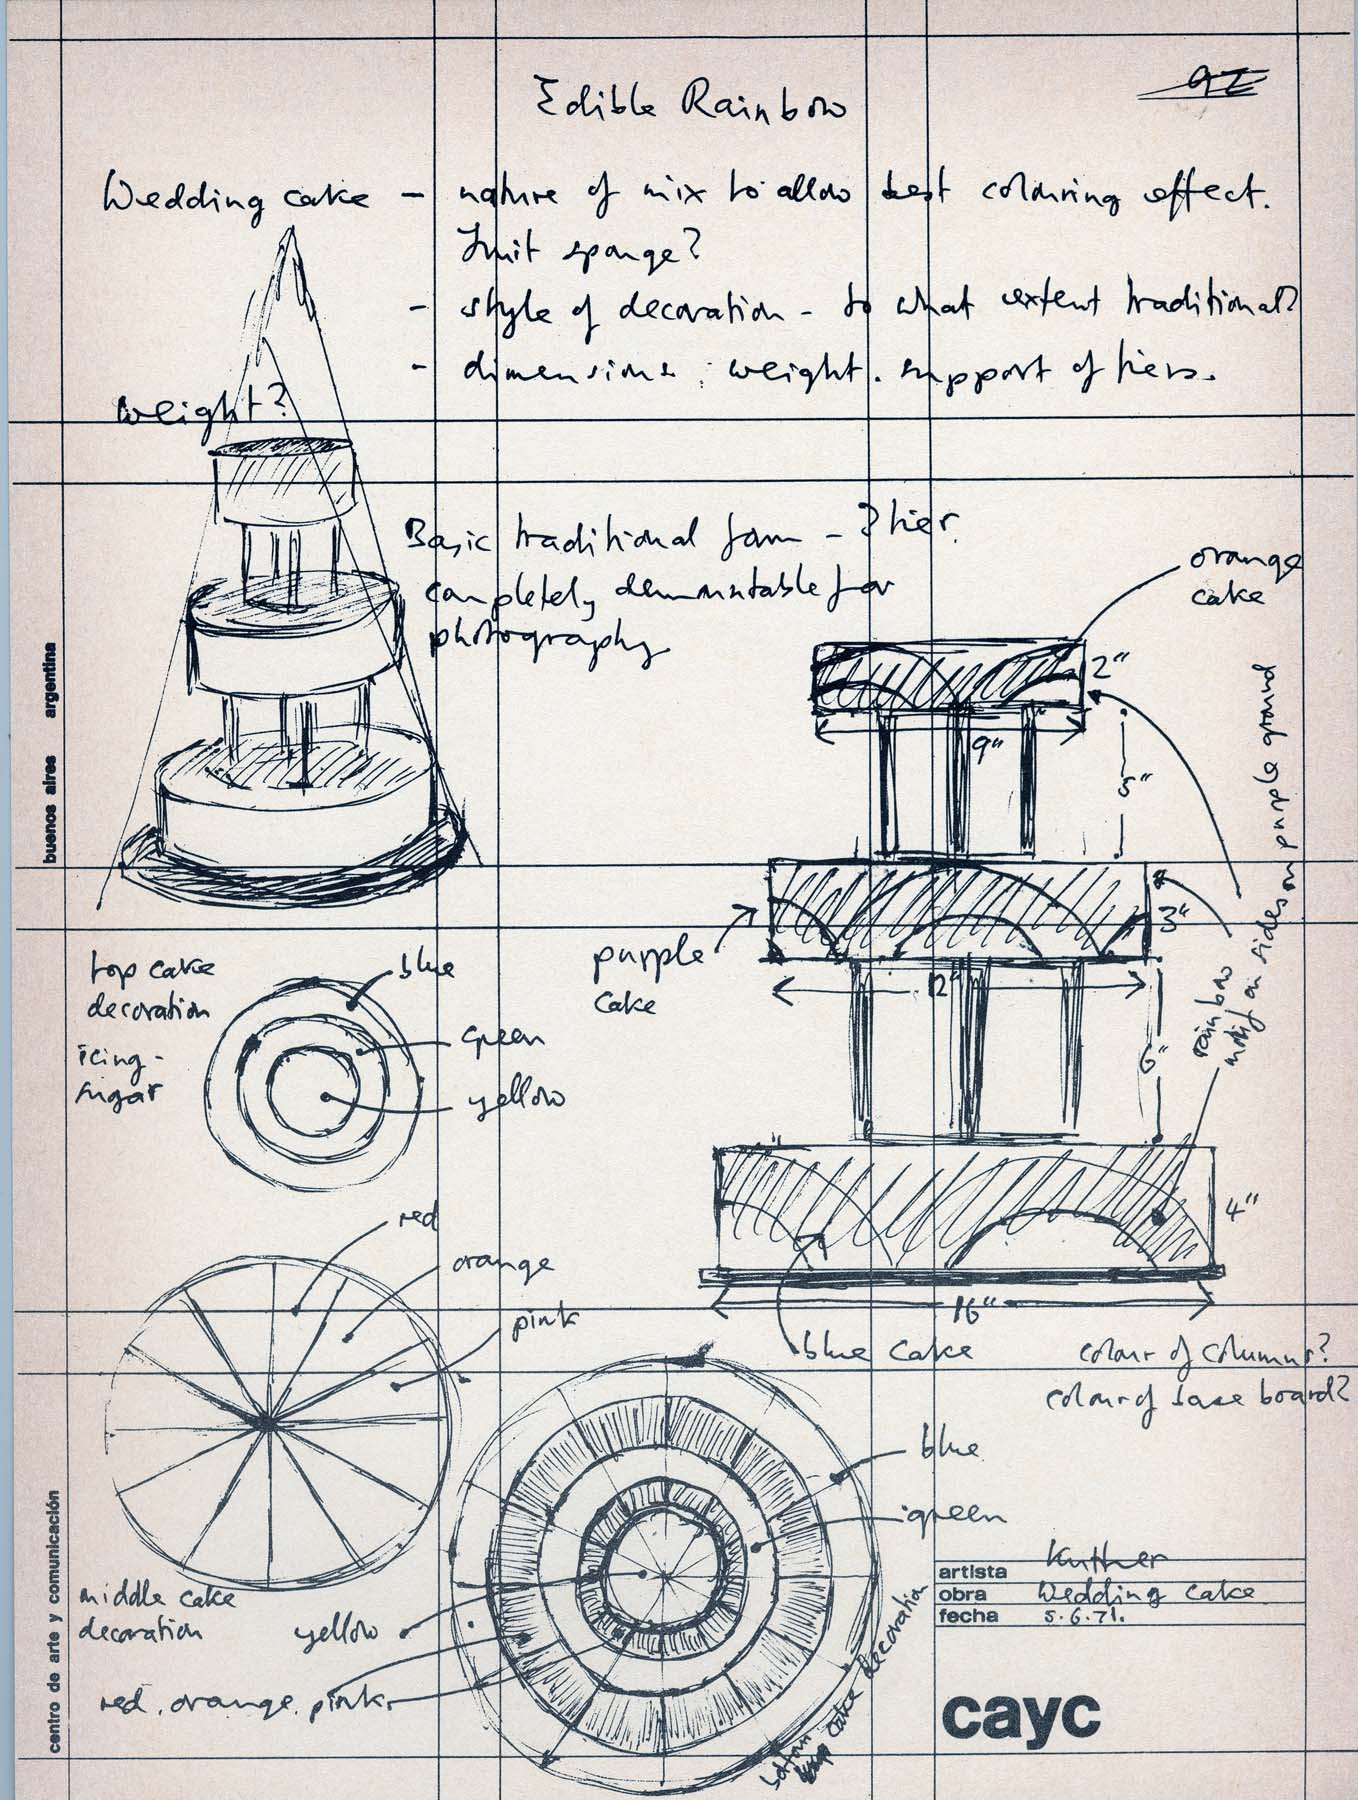 Edible Rainbow
Wedding cake - nature of mix to allow best colouring effect.
Fruit sponge?
- style of decoration - to what extent traditional?
- dimensions : weight. support of tiers.
weight?
Basic traditional form - 3 tier.
completely demountable for
photography
orange
cake
2"
9"
5"
rainbow
motif on sides on purple ground
purple
cake
3"
12"
6"
4"
16"
blue cake
colour of columns?
colour of base board?
top cake
decoration
icing-
sugar
blue
green
yellow
red
orange
pink
middle cake
decoration
yellow
red. orange. pink.
blue
green
bottom
cake decoration
buenos aires argentina
centro de arte y comunicación
artista Kuttner
obra Wedding cake
fecha 5.6.71.
cayc